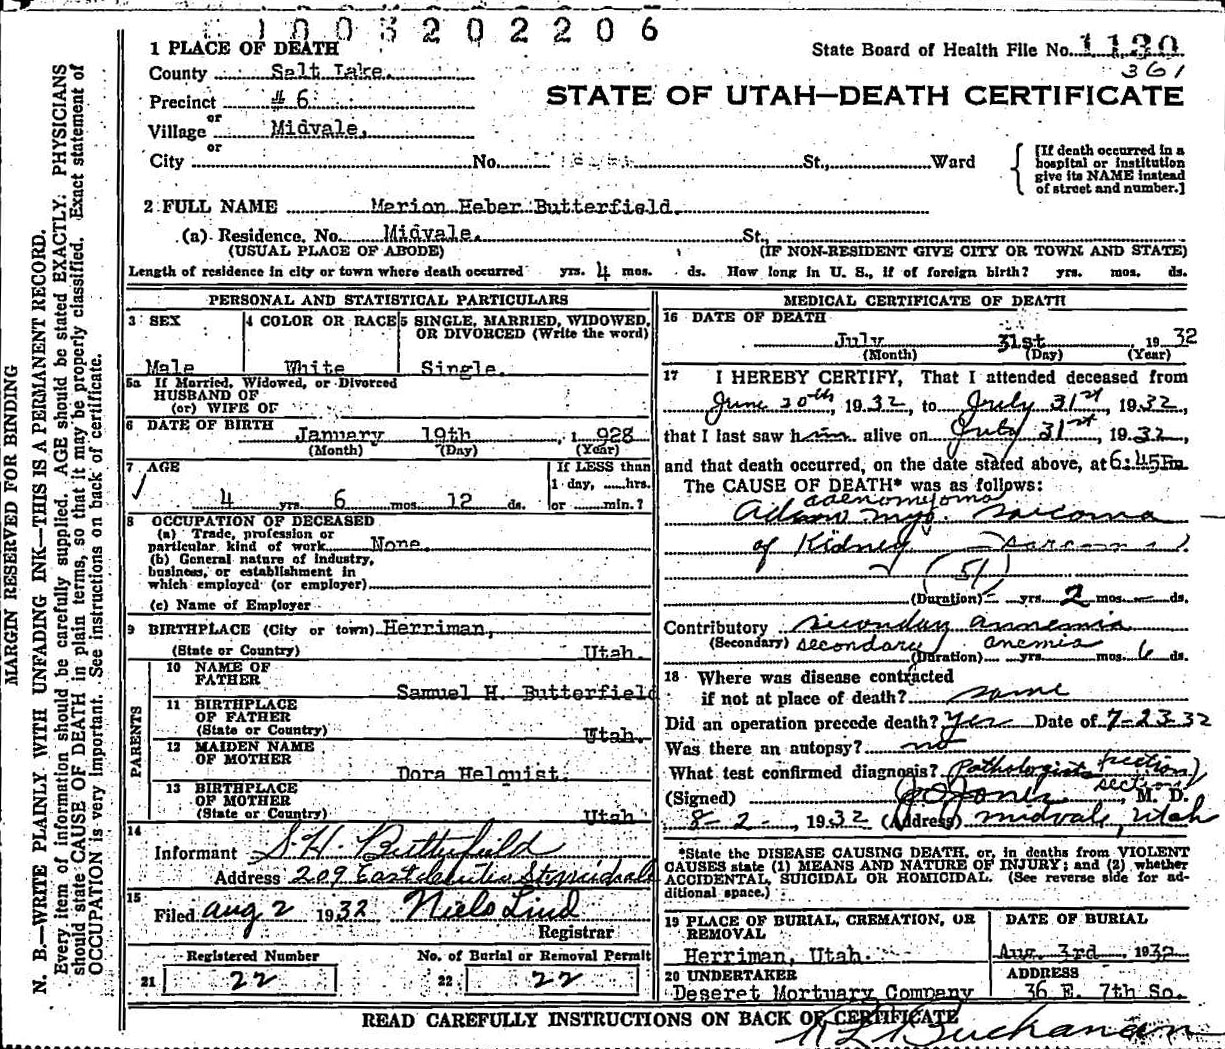 1003202206
1 PLACE OF DEATH
State Board of Health File No. 1130
361
County Salt Lake.
STATE OF UTAH—DEATH CERTIFICATE
Precinct #6
or
Village Midvale,
or
City No. St., Ward
[If death occurred in a hospital or institution give its NAME instead of street and number.]
2 FULL NAME Marion Heber Butterfield.
(a) Residence, No. Midvale. St.,
(USUAL PLACE OF ABODE) (IF NON-RESIDENT GIVE CITY OR TOWN AND STATE)
Length of residence in city or town where death occurred yrs. 4 mos. ds. How long in U. S., if of foreign birth? yrs. mos. ds.
PERSONAL AND STATISTICAL PARTICULARS
3 SEX
Male
4 COLOR OR RACE
White
5 SINGLE, MARRIED, WIDOWED, OR DIVORCED (Write the word)
Single.
5a If Married, Widowed, or Divorced
HUSBAND OF
(or) WIFE OF
6 DATE OF BIRTH January 19th, 1 928
(Month) (Day) (Year)
7 AGE
4 yrs. 6 mos. 12 ds.
If LESS than
1 day, ......hrs.
or ......min.?
8 OCCUPATION OF DECEASED
(a) Trade, profession or
particular kind of work None.
(b) General nature of industry,
business, or establishment in
which employed (or employer)
(c) Name of Employer
9 BIRTHPLACE (City or town) Herriman,
(State or Country) Utah.
PARENTS
10 NAME OF
FATHER
Samuel H. Butterfield
11 BIRTHPLACE
OF FATHER
(State or Country) Utah.
12 MAIDEN NAME
OF MOTHER
Dora Helquist.
13 BIRTHPLACE
OF MOTHER
(State or Country) Utah.
14
Informant S. H. Butterfield
Address 209 East
15
Filed Aug 2 1932 Niels Lind
Registrar
Registered Number No. of Burial or Removal Permit
21 22 22 22
MEDICAL CERTIFICATE OF DEATH
16 DATE OF DEATH
July 31st 19 32
(Month) (Day) (Year)
17 I HEREBY CERTIFY, That I attended deceased from
June 20th, 1932, to July 31st, 1932,
that I last saw him alive on July 31st, 1932,
and that death occurred, on the date stated above, at 6:45Pm.
The CAUSE OF DEATH* was as follows:
adenomyoma
Adeno myo. sarcoma
of Kidney sarcoma
(51)
(Duration) — yrs. 2 mos. — ds.
Contributory seconday annemia
(Secondary) secondary anemia
(Duration) — yrs. mos. 6 ds.
18 Where was disease contracted
if not at place of death? same
Did an operation precede death? Yes Date of 7-23-32
Was there an autopsy? no
What test confirmed diagnosis? Pathologists
section)
(Signed) Jones, M. D.
8-2-, 1932 (Address) Midvale, Utah
*State the DISEASE CAUSING DEATH, or, in deaths from VIOLENT
CAUSES state (1) MEANS AND NATURE OF INJURY; and (2) whether
ACCIDENTAL, SUICIDAL OR HOMICIDAL. (See reverse side for ad-
ditional space.)
19 PLACE OF BURIAL, CREMATION, OR
REMOVAL
Herriman, Utah.
DATE OF BURIAL
Aug. 3rd 1932
20 UNDERTAKER
Deseret Mortuary Company
ADDRESS
36 E. 7th So.
READ CAREFULLY INSTRUCTIONS ON BACK OF CERTIFICATE
Buchanan
MARGIN RESERVED FOR BINDING
N. B.—WRITE PLAINLY WITH UNFADING INK—THIS IS A PERMANENT RECORD.
Every item of information should be carefully supplied. AGE should be stated EXACTLY. PHYSICIANS
should state CAUSE OF DEATH in plain terms, so that it may be properly classified. Exact statement of
OCCUPATION is very important. See instructions on back of certificate.